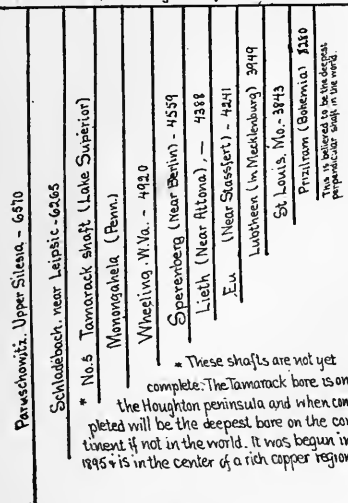 Paruschowitz, Upper Silesia - 6570
Schladebach, near Leipsic - 6265
* No. 5 Tamarack shaft (Lake Superior)
Monongahela (Penn.)
Wheeling, W.Va. - 4920
Sperenberg (Near Berlin) - 4559
Lieth (Near Altona), - 4388
Eu (Near Stassfert) - 4241
Lubtheen (in Mecklenburg) 3949
St Louis, Mo. - 3843
Przilram (Bohemia) 3280
This is believed to be the deepest
perpendicular shaft in the world.
* These shafts are not yet
complete. The Tamarack bore is on
the Houghton peninsula and when com
pleted will be the deepest bore on the con
tinent if not in the world. It was begun in
1895 & is in the center of a rich copper region